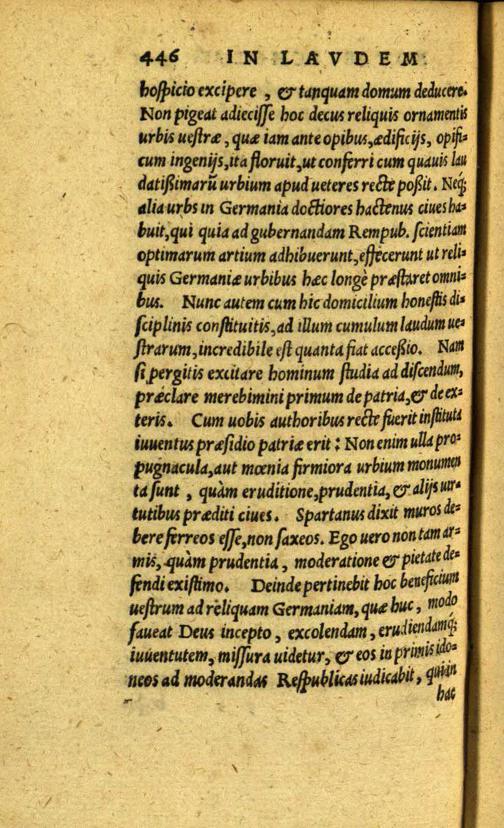 446 IN LAVDEM
hoſpicio excipere, & tanquam domum deducere.
Non pigeat adieciſſe hoc decus reliquis ornamentis
urbis ueſtræ, quæ iam ante opibus, ædificijs, opifi=
cum ingenijs, ita floruit, ut conferri cum quauis lau
datißimarũ urbium apud ueteres recte poßit. Neq;
alia urbs in Germania doctiores hactenus ciues ha=
buit, qui quia ad gubernandam Rempub. ſcientiam
optimarum artium adhibuerunt, effecerunt ut reli=
quis Germaniæ urbibus hæc longè præſtaret omni=
bus. Nunc autem cum hic domicilium honeſtis di=
ſciplinis conſtituitis, ad illum cumulum laudum ue=
ſtrarum, incredibile eſt quanta fiat acceßio. Nam
ſi pergitis excitare hominum ſtudia ad diſcendum,
præclare merebimini primum de patria, & de ex=
teris. Cum uobis authoribus recte fuerit inſtituta
iuuentus præſidio patriæ erit: Non enim ulla pro=
pugnacula, aut mœnia firmiora urbium monumen
ta ſunt, quàm eruditione, prudentia, & alijs uir=
tutibus præditi ciues. Spartanus dixit muros de=
bere ferreos eſſe, non ſaxeos. Ego uero non tam ar=
mis, quàm prudentia, moderatione & pietate de=
fendi exiſtimo. Deinde pertinebit hoc beneficium
ueſtrum ad reliquam Germaniam, quæ huc, modo
faueat Deus incepto, excolendam, erudiendamq;
iuuentutem, miſſura uidetur, & eos in primis ido=
neos ad moderandas Reſpublicas iudicabit, qui in
hac